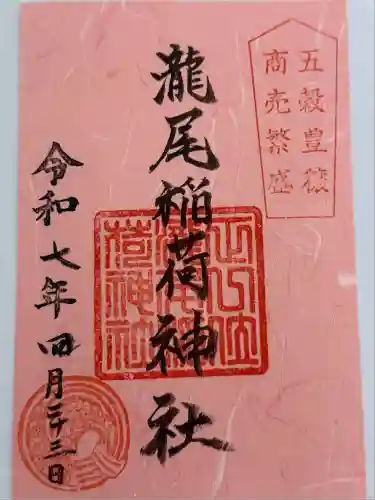 五穀豊穣
商売繁盛
瀧尾稲荷神社
令和七年四月二十三日
正一位
瀧尾稲
荷神社